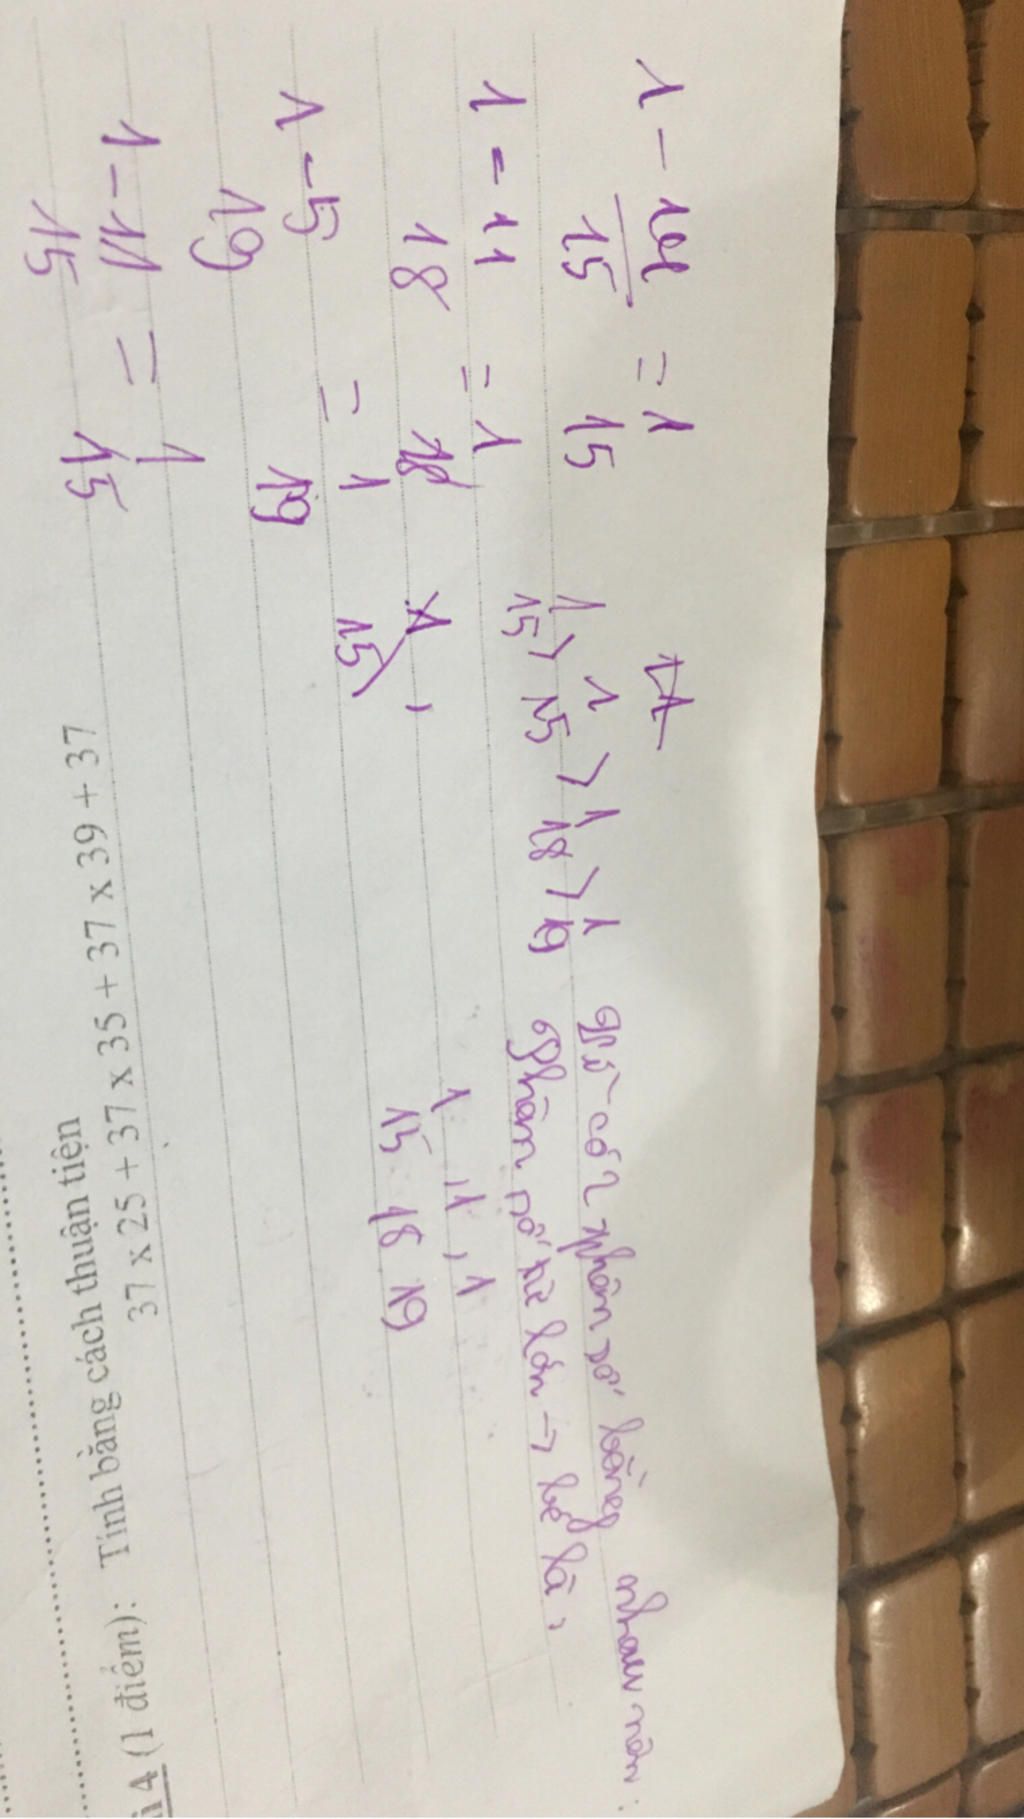 Bài 4 (1 điểm): Tính bằng cách thuận tiện
37 x 25 + 37 x 35 + 37 x 39 + 37
1 - 14 = 1
15 15
1 - 11 = 1
18 18
1 - 5 = 1
19 19
1 - 11 = 1
15 15
1 > 1 > 1 > 1
15 15 18 19
Vì có 2 phân số bằng nhau nên
Phân số từ lớn → bé là:
1, 1, 1
15 18 19
1
15